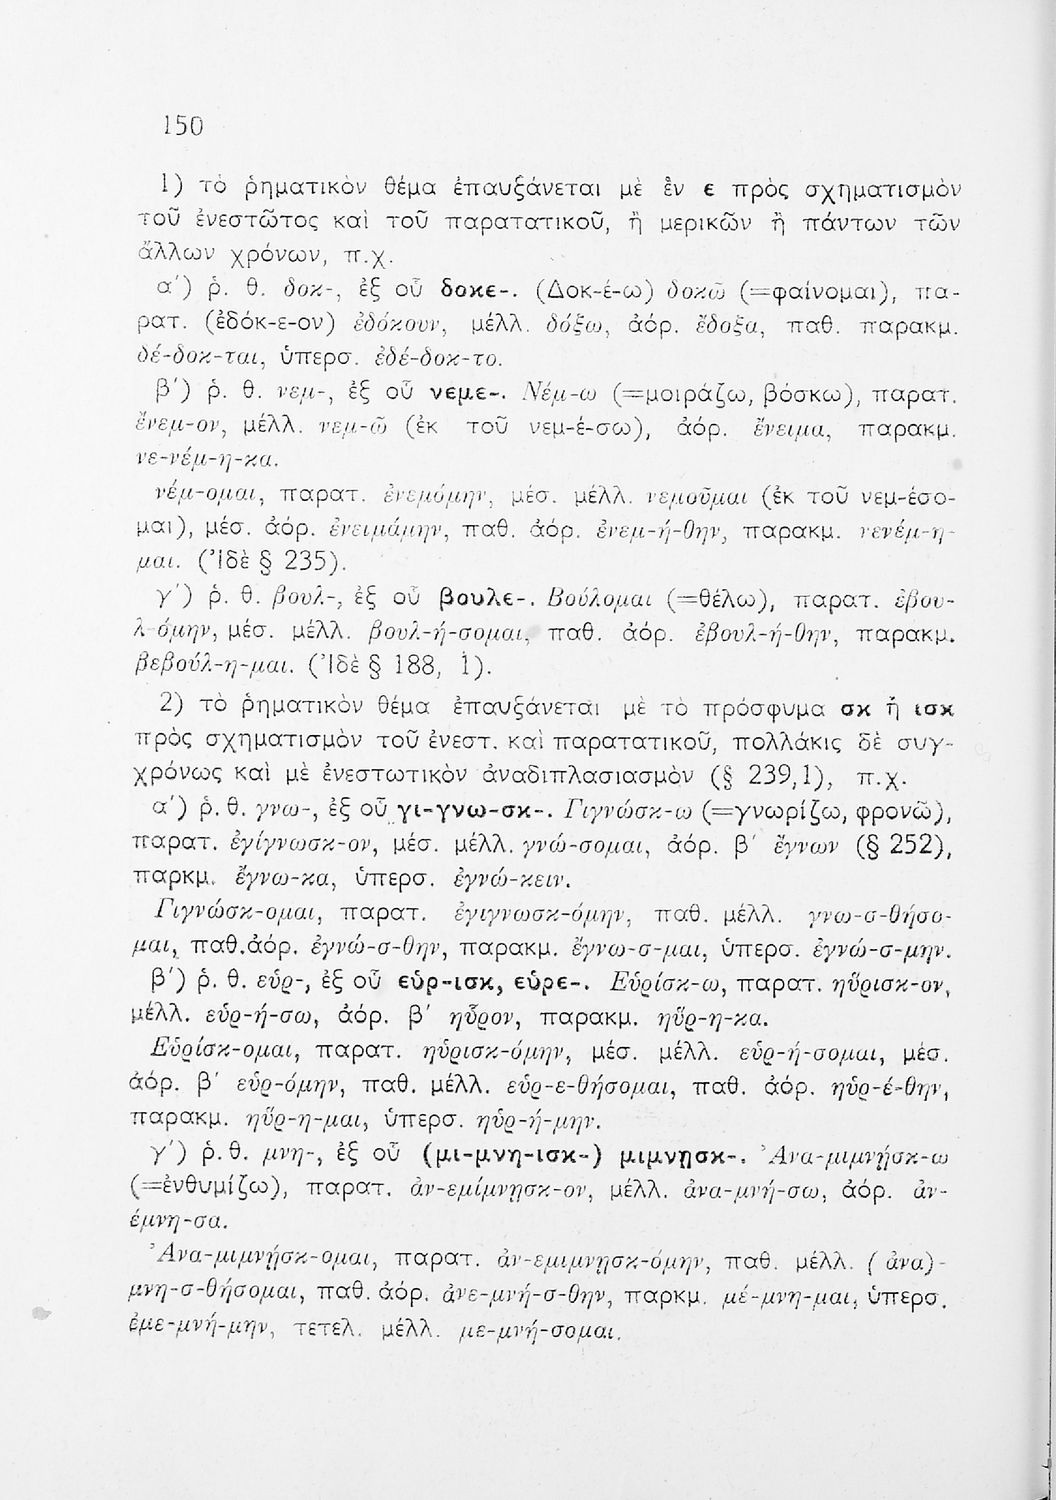 150
1) τὸ ῥηματικὸν θέμα ἐπαυξάνεται μὲ ἓν ε πρὸς σχηματισμὸν
τοῦ ἐνεστῶτος καὶ τοῦ παρατατικοῦ, ἢ μερικῶν ἢ πάντων τῶν
ἄλλων χρόνων, π.χ.
α') ῥ. θ. δοκ-, ἐξ οὗ δοκε-. (Δοκ-έ-ω) δοκῶ (=φαίνομαι), πα-
ρατ. (ἐδόκ-ε-ον) ἐδόκουν, μέλλ. δόξω, ἀόρ. ἔδοξα, παθ. παρακμ.
δέ-δοκ-ται, ὑπερσ. ἐδέ-δοκ-το.
β') ῥ. θ. νεμ-, ἐξ οὗ νεμε-. Νέμ-ω (=μοιράζω, βόσκω), παρατ.
ἔνεμ-ον, μέλλ. νεμ-ῶ (ἐκ τοῦ νεμ-έ-σω), ἀόρ. ἔνειμα, παρακμ.
νε-νέμ-η-κα.
νέμ-ομαι, παρατ. ἐνεμόμην, μέσ. μέλλ. νεμοῦμαι (ἐκ τοῦ νεμ-έσο-
μαι), μέσ. ἀόρ. ἐνειμάμην, παθ. ἀόρ. ἐνεμ-ή-θην, παρακμ. νενέμ-η-
μαι. (Ἰδὲ § 235).
γ') ῥ. θ. βουλ-, ἐξ οὗ βουλε-. Βούλομαι (=θέλω), παρατ. ἐβου-
λ-όμην, μέσ. μέλλ. βουλ-ή-σομαι, παθ. ἀόρ. ἐβουλ-ή-θην, παρακμ.
βεβούλ-η-μαι. (Ἰδὲ § 188, 1).
2) τὸ ῥηματικὸν θέμα ἐπαυξάνεται μὲ τὸ πρόσφυμα σκ ἢ ισκ
πρὸς σχηματισμὸν τοῦ ἐνεστ. καὶ παρατατικοῦ, πολλάκις δὲ συγ-
χρόνως καὶ μὲ ἐνεστωτικὸν ἀναδιπλασιασμὸν (§ 239,1), π.χ.
α') ῥ. θ. γνω-, ἐξ οὗ γι-γνω-σκ-. Γιγνώσκ-ω (=γνωρίζω, φρονῶ),
παρατ. ἐγίγνωσκ-ον, μέσ. μέλλ. γνώ-σομαι, ἀόρ. β' ἔγνων (§ 252),
παρκμ. ἔγνω-κα, ὑπερσ. ἐγνώ-κειν.
Γιγνώσκ-ομαι, παρατ. ἐγιγνωσκ-όμην, παθ. μέλλ. γνω-σ-θήσο-
μαι, παθ.ἀόρ. ἐγνώ-σ-θην, παρακμ. ἔγνω-σ-μαι, ὑπερσ. ἐγνώ-σ-μην.
β') ῥ. θ. εὑρ-, ἐξ οὗ εὑρ-ισκ, εὑρε-. Εὑρίσκ-ω, παρατ. ηὕρισκ-ον,
μέλλ. εὑρ-ή-σω, ἀόρ. β' ηὗρον, παρακμ. ηὕρ-η-κα.
Εὑρίσκ-ομαι, παρατ. ηὑρισκ-όμην, μέσ. μέλλ. εὑρ-ή-σομαι, μέσ.
ἀόρ. β' εὑρ-όμην, παθ. μέλλ. εὑρ-ε-θήσομαι, παθ. ἀόρ. ηὑρ-έ-θην,
παρακμ. ηὕρ-η-μαι, ὑπερσ. ηὑρ-ή-μην.
γ') ῥ. θ. μνη-, ἐξ οὗ (μι-μνη-ισκ-) μιμνῃσκ-. Ἀνα-μιμνῄσκ-ω
(=ἐνθυμίζω), παρατ. ἀν-εμίμνῃσκ-ον, μέλλ. ἀνα-μνή-σω, ἀόρ. ἀν-
έμνη-σα.
Ἀνα-μιμνῄσκ-ομαι, παρατ. ἀν-εμιμνῃσκ-όμην, παθ. μέλλ. (ἀνα)-
μνη-σ-θήσομαι, παθ. ἀόρ. ἀνε-μνή-σ-θην, παρκμ. μέ-μνη-μαι, ὑπερσ.
ἐμε-μνή-μην, τετελ. μέλλ. με-μνή-σομαι.